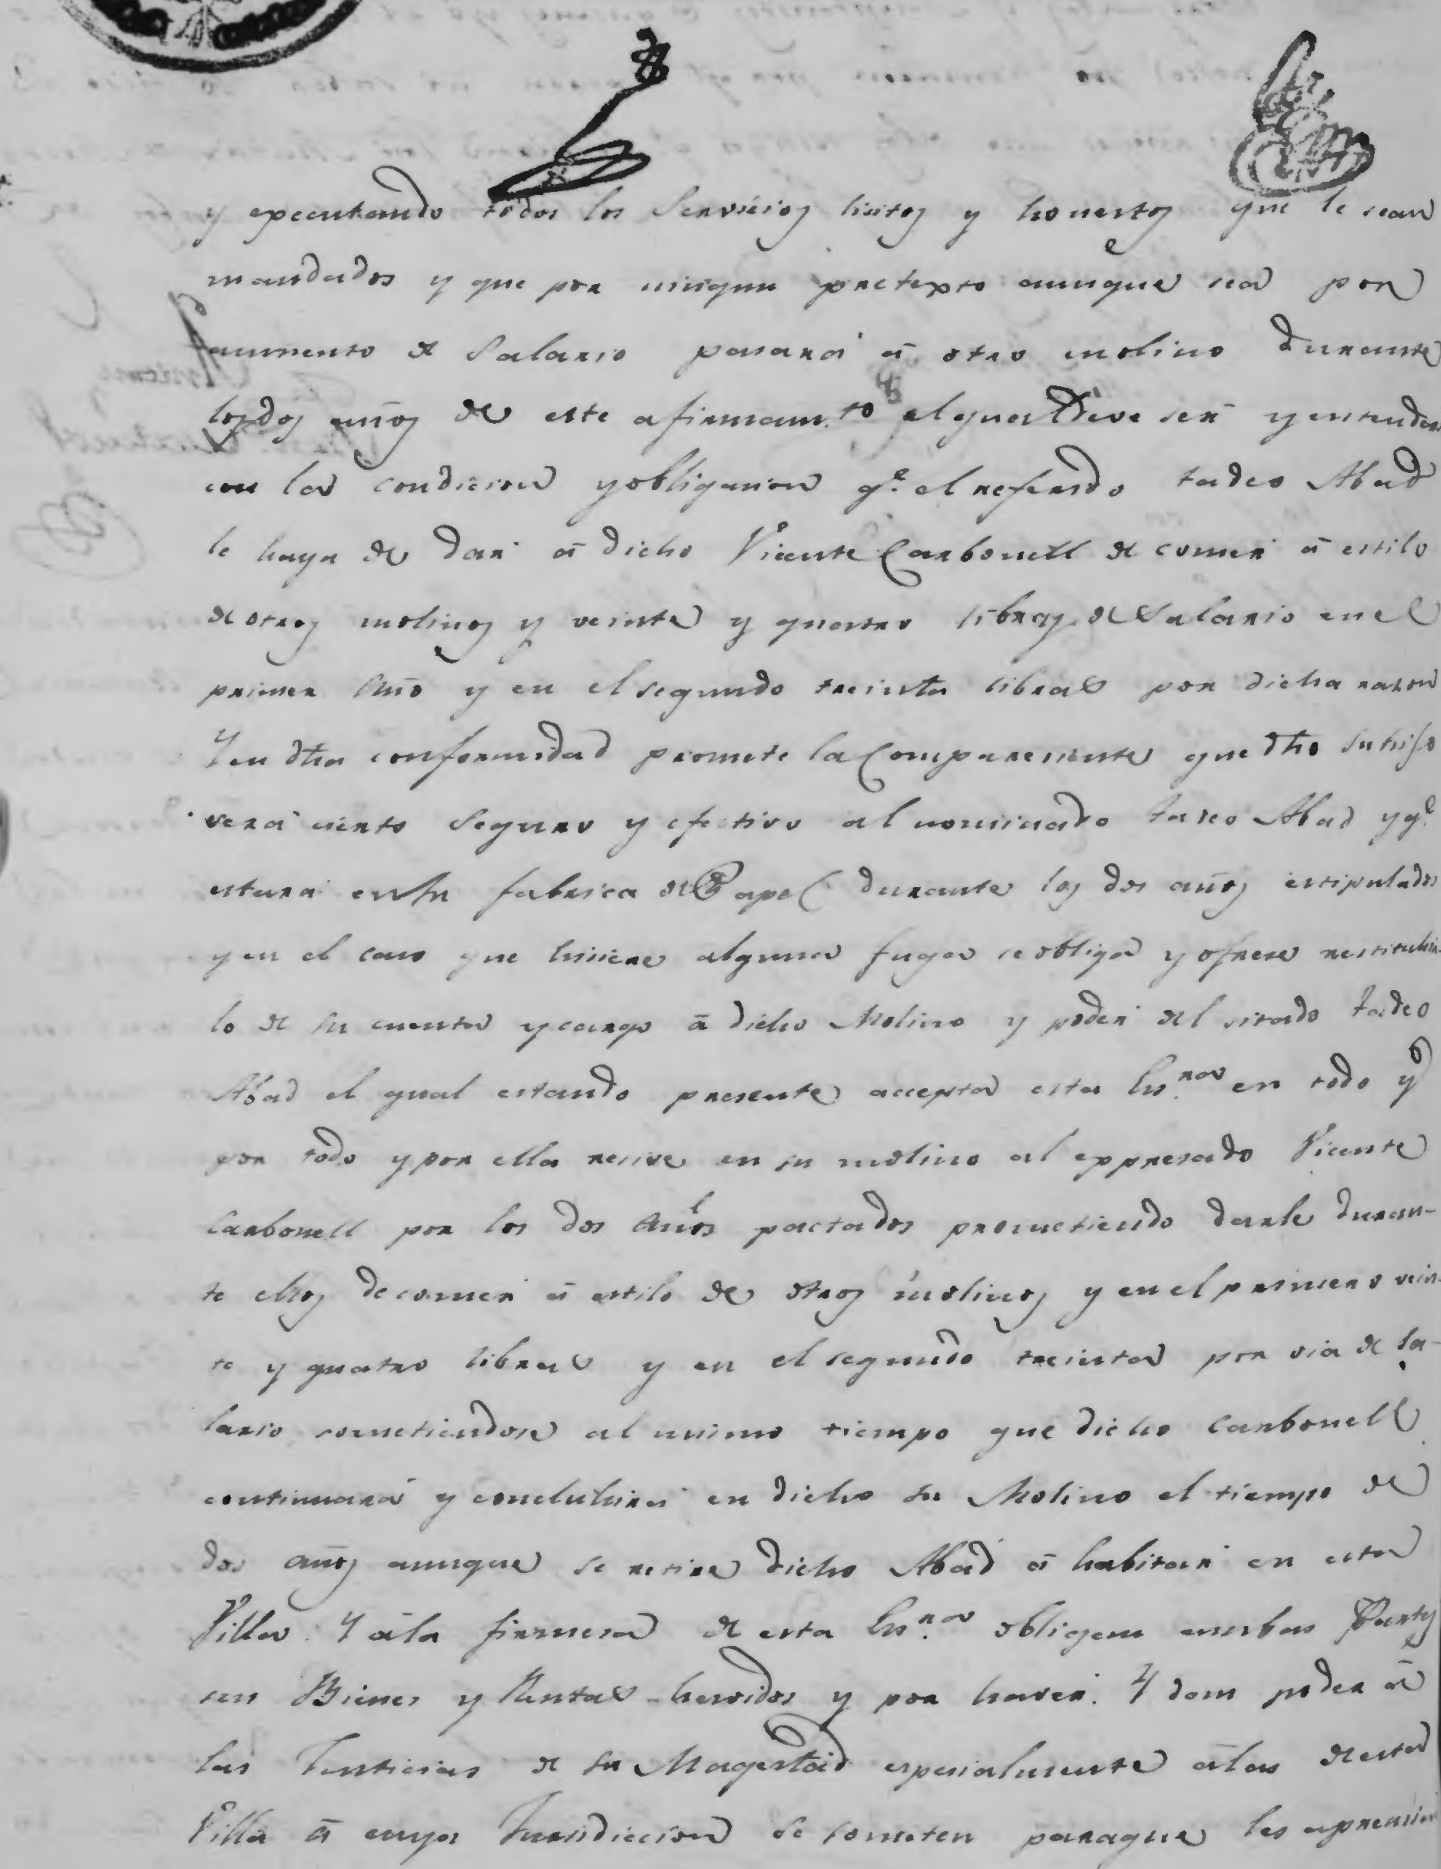 y executando todos los Servicios licitos y honestos que le sean
mandados y que por ningun pretexto aunque sea por
aumento de Salario pasará á otro molino durante
los dos años de este afirmam.to el qual deve ser y entenders
con la condicion y obligacion q.e el referido tadeo Abad
le haya de dar á dicho Vicente Carbonell de comer á estilo
de otros molinos y veinte y quatro libras de Salario en el
primer Año y en el segundo treinta libras por dicha razon
Y en dha conformidad promete la Compareciente que dho su hijo
será cierto seguro y efectivo al nominado tadeo Abad y q.e
estará en su fabrica de Papel durante los dos años estipulados
y en el caso que hiciere alguna fuga se obliga y ofrese restituhir
lo de su cuenta y cargo á dicho Molino y poder del sitado tadeo
Abad el qual estando presente accepta esta Es.ra en todo y
por todo y por ella resive en su molino al expresado Vicente
Carbonell por los dos Años pactados prometiendo darle duran-
te ellos de comer á estilo de otros molinos y en el primero vein-
te y quatro libras y en el segundo treinta por via de Sa-
lario sometiendose al mismo tiempo que dicho Carbonell
continuará y concluhirá en dicho su Molino el tiempo de
dos años aunque se retire dicho Abad á habitar en esta
Villa. Y á la firmesa de esta Es.ra obligan ambas Partes
sus Bienes y Rentas havidos y por haver. Y dan poder á
las Justicias de su Magestad espesialmente á las de esta
Villa á cuya Jurisdiccion se someten para que les apremien